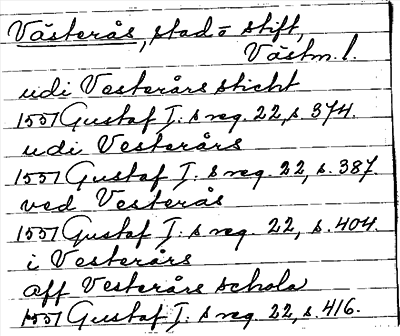 Västerås, stad o stift,
Västm. l.
udi Vesterårs sticht
1551 Gustaf I:s reg. 22, s. 374.
udi Vesterårs
1551 Gustaf I:s reg. 22, s. 387.
ved Vesterås
1551 Gustaf I:s reg. 22, s. 404.
i Vesterårs
aff Vesterårs schola
1551 Gustaf I:s reg. 22, s. 416.